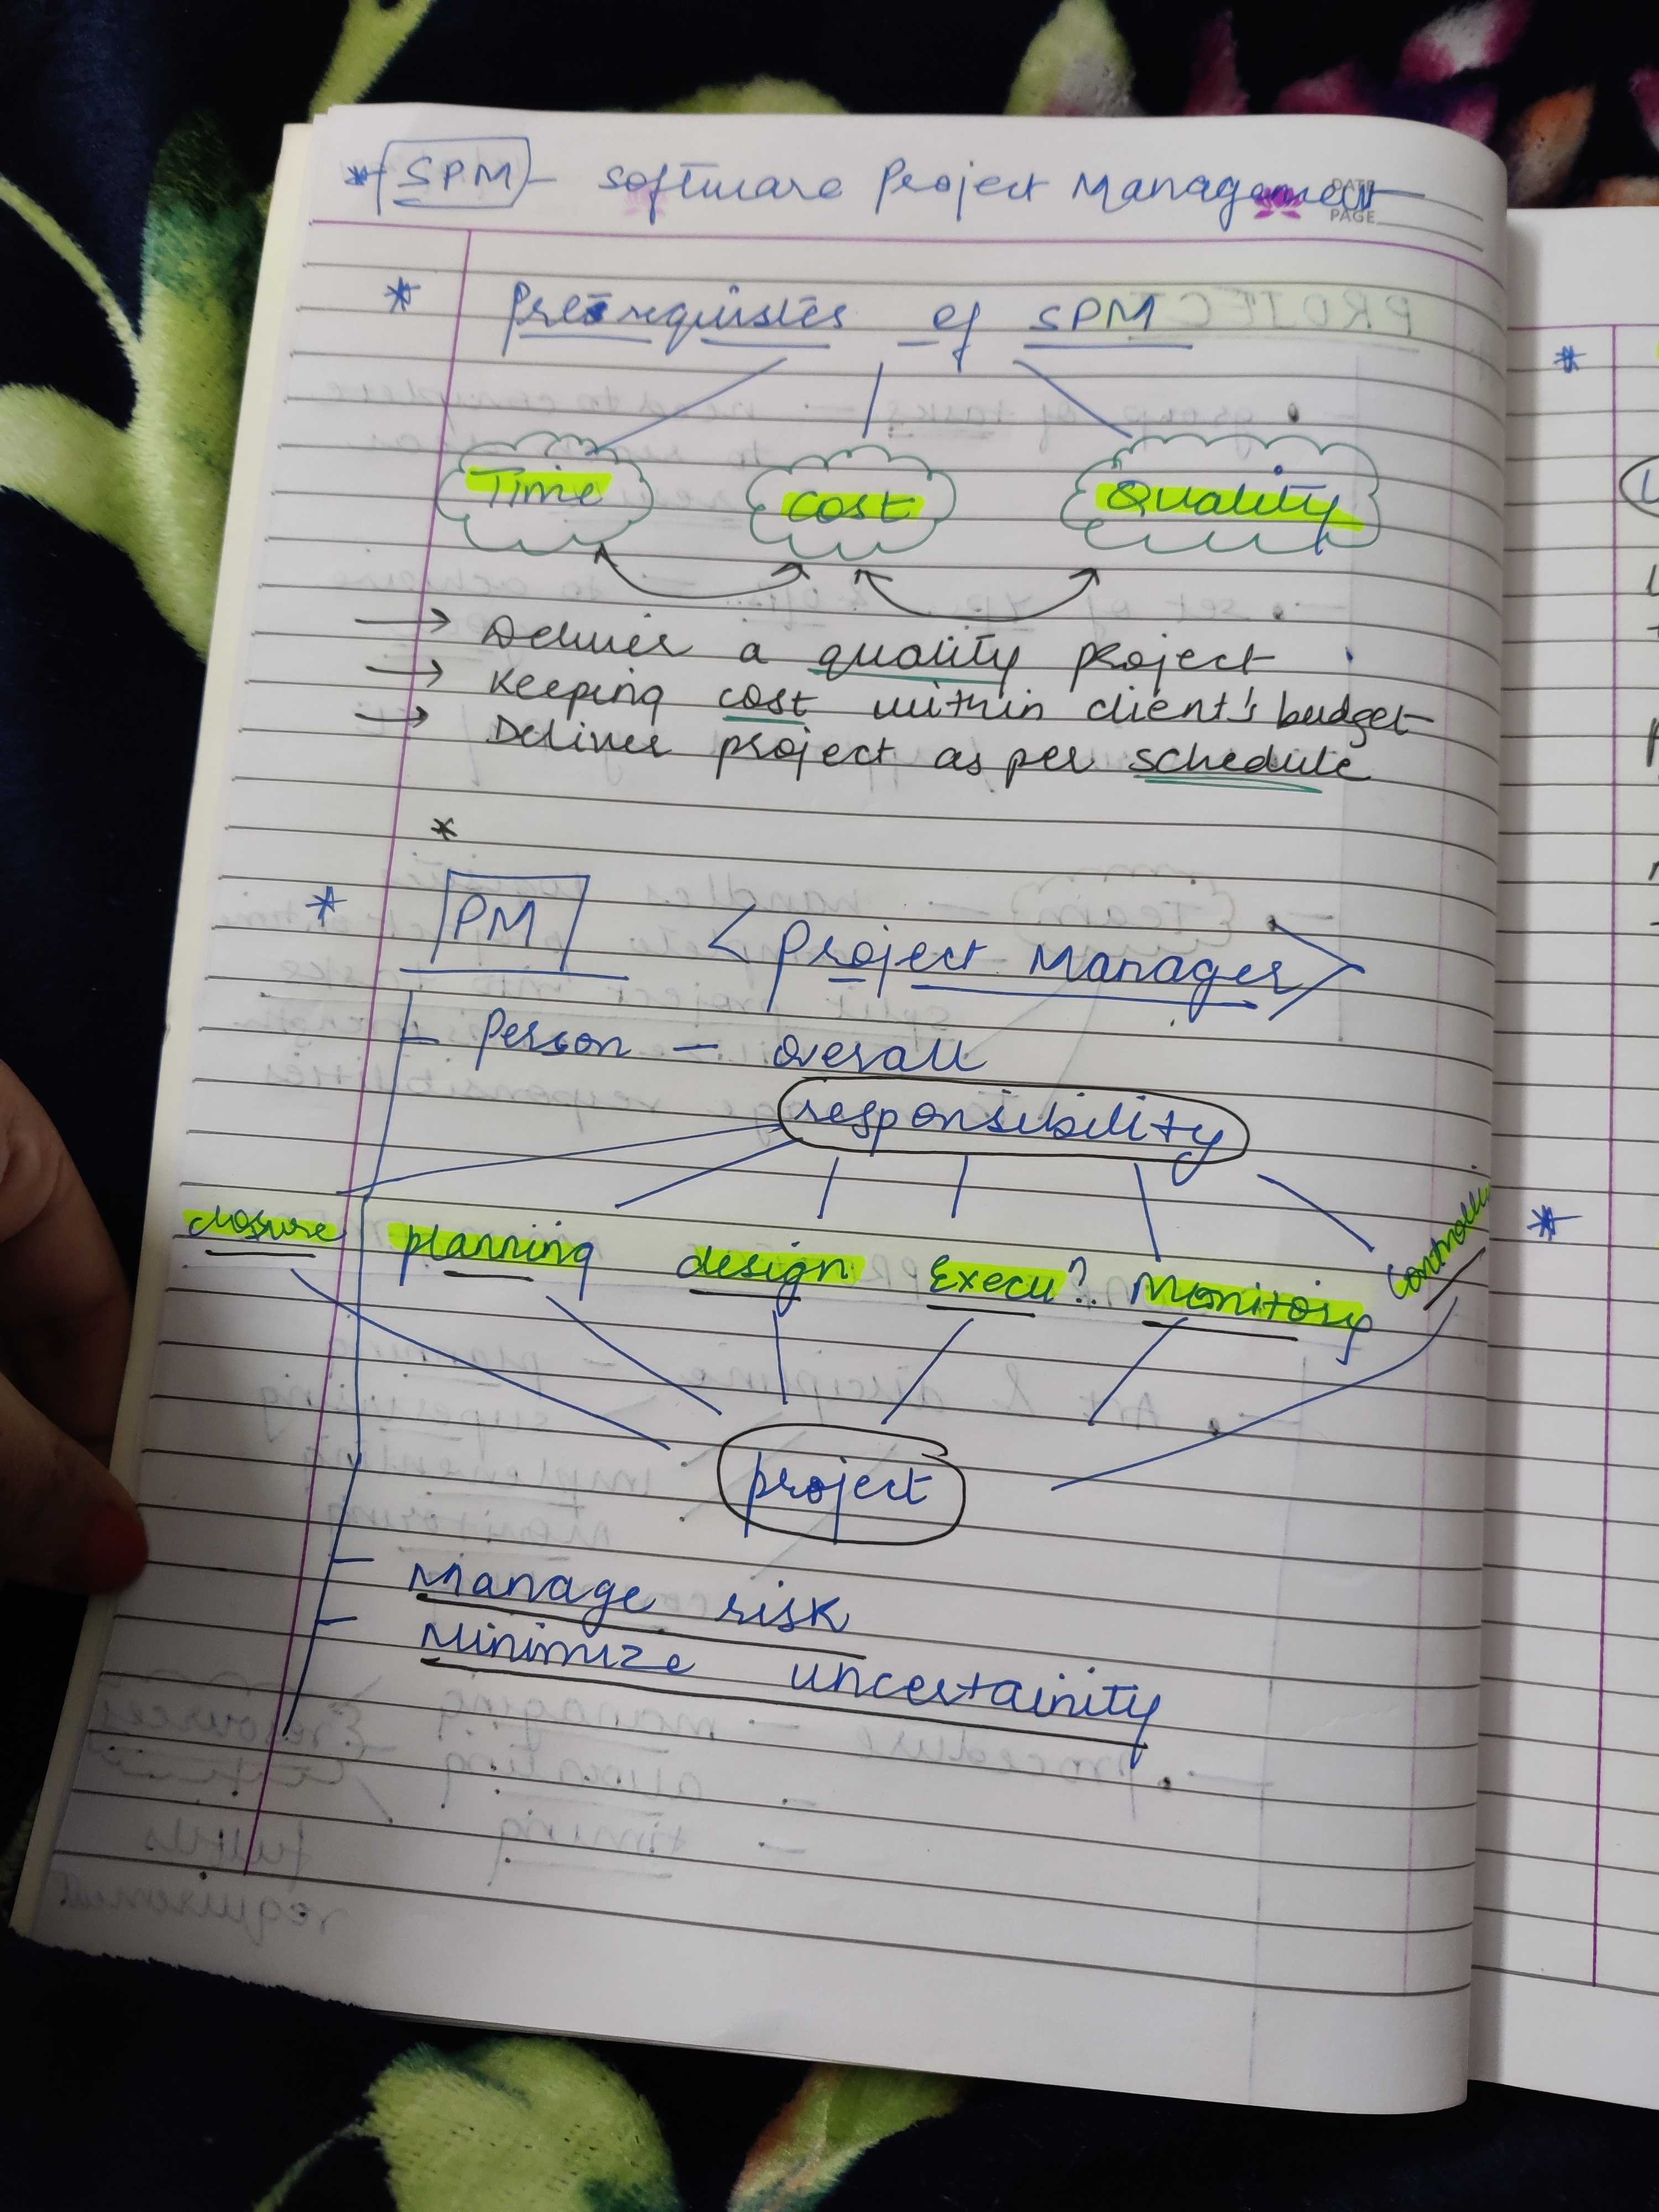 * SPM - Software Project Management
DATE
PAGE
* Prerequisites of SPM
Time Cost Quality
→ Deliver a quality project
→ Keeping cost within client's budget
→ Deliver project as per schedule
*
* PM < Project Manager >
- Person - overall
responsibility
closure planning design Execu? Monitory
project
- Manage risk
- Minimize uncertainity